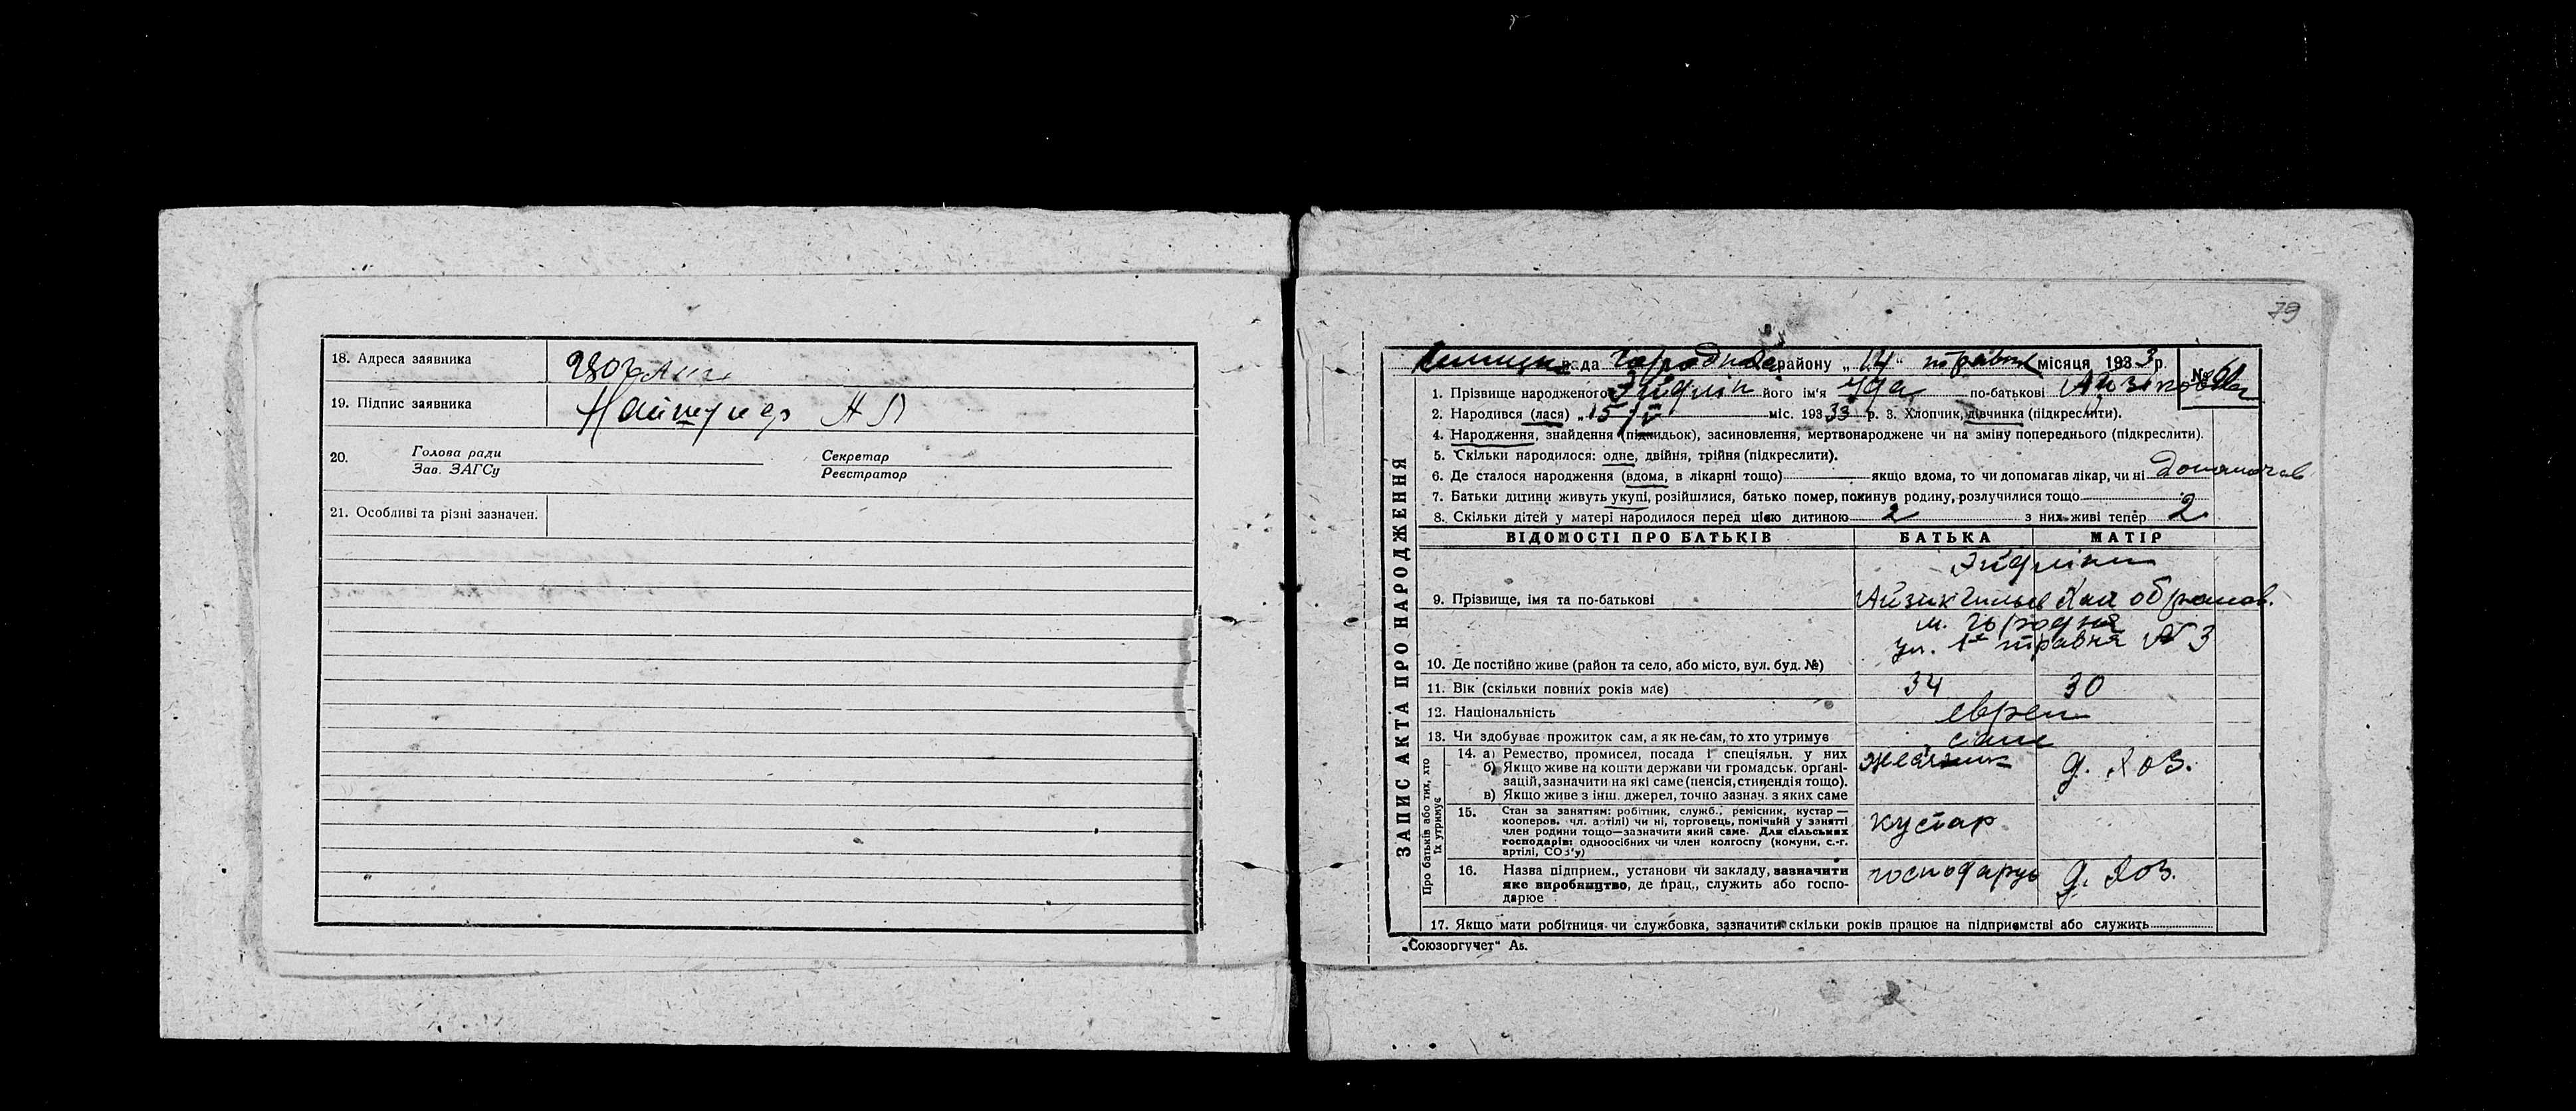 18. Адреса заявника
19. Підпис заявника
20. Голова ради Секретар
Зав. ЗАГСу Реєстратор
21. Особливі та різні зазначен.
79
рада района району „14“ травня місяця 1933 р.
№
1. Прізвище народженого Эйдлін його ім'я Уда по-батькові Айзіковна
2. Народився (лася) „15/V міс. 1933 р. 3. Хлопчик, дівчинка (підкреслити).
4. Народження, знайдення (підкидьок), засиновлення, мертвонароджене чи на зміну попереднього (підкреслити).
5. Скільки народилося: одне, двійня, трійня (підкреслити).
6. Де сталося народження (вдома, в лікарні тощо) якщо вдома, то чи допомагав лікар, чи ні допомагав
7. Батьки дитини живуть укупі, розійшлися, батько помер, покинув родину, розлучилися тощо
8. Скільки дітей у матері народилося перед цією дитиною 2 з них живі тепер 2
ЗАПИС АКТА ПРО НАРОДЖЕННЯ
ВІДОМОСТІ ПРО БАТЬКІВ БАТЬКА МАТІР
Эйдліни
9. Прізвище, імя та по-батькові Айзик Хая Обрамов.
м. Городня
ул. 1го травня № 3
10. Де постійно живе (район та село, або місто, вул. буд. №)
11. Вік (скільки повних років має) 34 30
12. Національність євреи
13. Чи здобуває прожиток сам, а як не сам, то хто утримує самі
Про батьків або тих, хто їх утримує
14. а) Ремество, промисел, посада і спеціяльн. у них
б) Якщо живе на кошти держави чи громадськ. органі-
зацій, зазначити на які саме (пенсія, стипендія тощо).
в) Якщо живе з інш. джерел, точно зазнач. з яких саме
жестяник д. хоз.
15. Стан за заняттям: робітник, служб., ремісник, кустар —
кооперов. чл. артілі) чи ні, торговець, помічний у занятті
член родини тощо—зазначити який саме. Для сільських
господарів: одноосібних чи член колгоспу (комуни, с.-г.
артілі, СОЗ'у)
кустар
16. Назва підприєм., установи чи закладу, зазначити
яке виробництво, де прац., служить або госпо-
дарює
господарує д. хоз.
17. Якщо мати робітниця чи службовка, зазначити скільки років працює на підприємстві або служить
„Союзоргучет“ Аз.